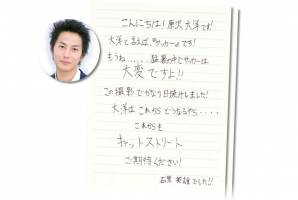 こんにちは!原沢大洋です!
大洋と言えば、"サッカー"です!
もうね……、猛暑の中でサッカーは
大変ですよ!!
この撮影でかなり日焼けしました!
大洋は これから どうなるやら・・・・
これからも
キャットストリート
ご期待ください!
石黒 英雄でした!!